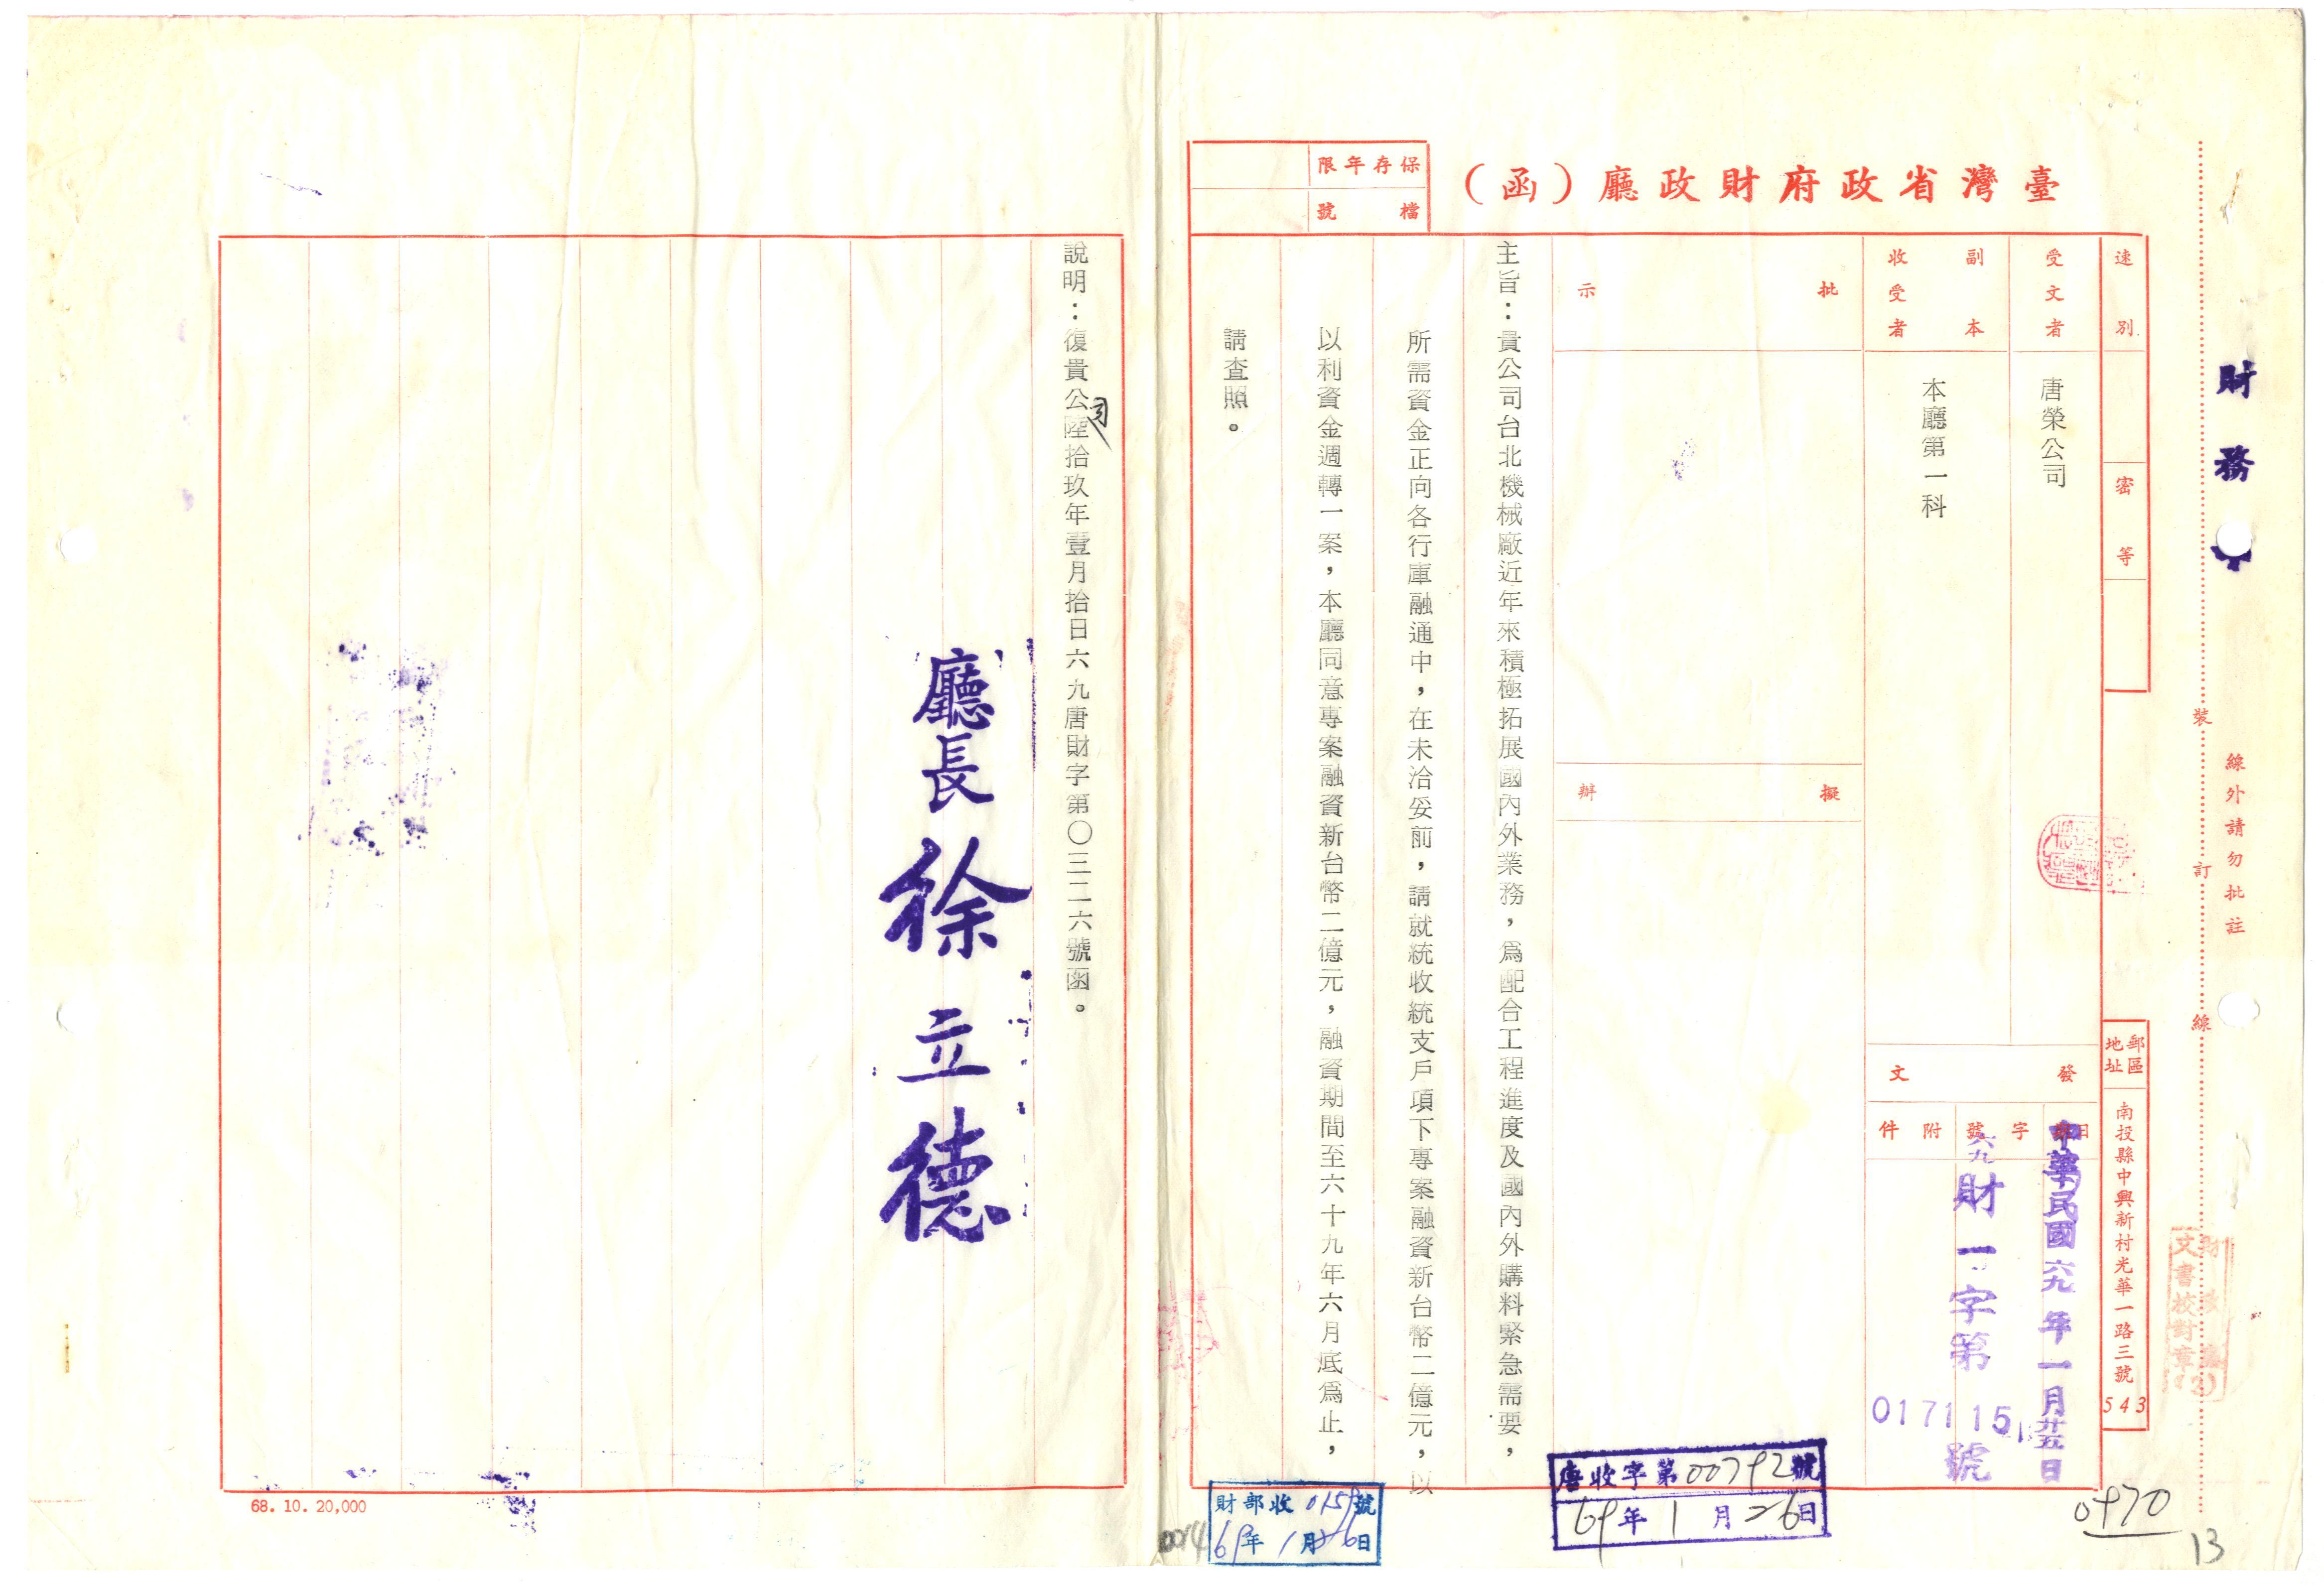 臺灣省政府財政廳（函）
保存年限
檔號
財務
線外請勿批註
裝
訂
線
速別
密等
郵區
地址
南投縣中興新村光華一路三號
543
受文者
唐榮公司
副本
收受者
本廳第一科
發文
日期
中華民國六九年一月廿五日
字號
六九財一字第
017115
號
附件
批示
擬辦
主旨：貴公司台北機械廠近年來積極拓展國內外業務，爲配合工程進度及國內外購料緊急需要，
所需資金正向各行庫融通中，在未洽妥前，請就統收統支戶項下專案融資新台幣二億元，以
以利資金週轉一案，本廳同意專案融資新台幣二億元，融資期間至六十九年六月底爲止，
請查照。
說明：復貴公司陸拾玖年壹月拾日六九唐財字第〇三二六號函。
廳長徐立德
文書校對章
唐收字第00792號
69年1月26日
財部收0159號
69年1月26日
0970
13
68.10.20,000